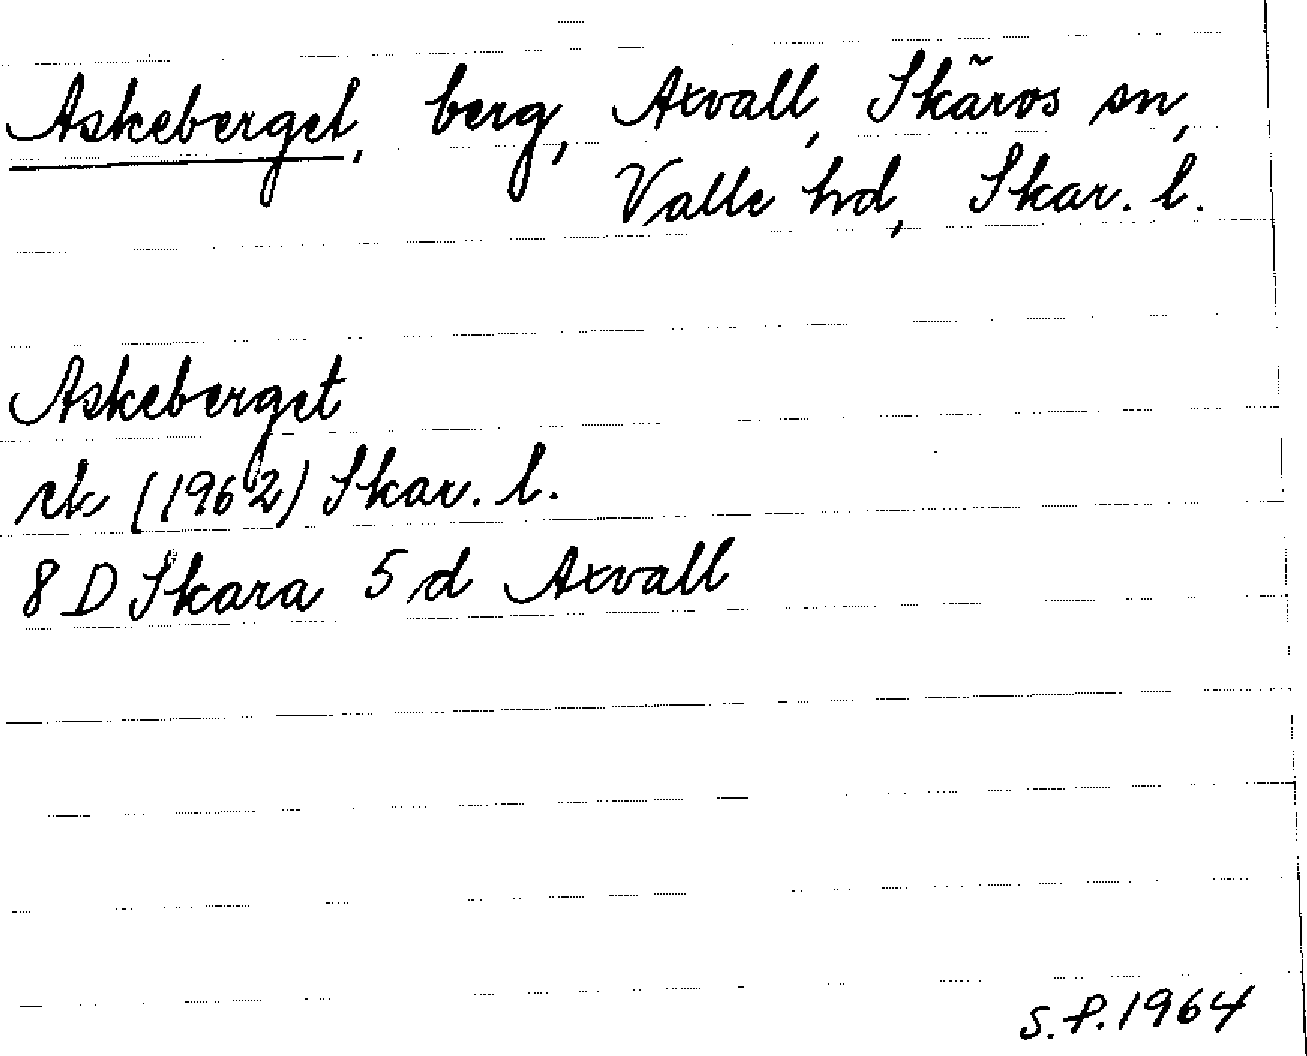 Askeberget, berg, Axvall, Skärvs sn,
Valle hd, Skar. l.
Askeberget
rk (1962) Skar. l.
8 D Skara 5 d Axvall
S.F. 1964